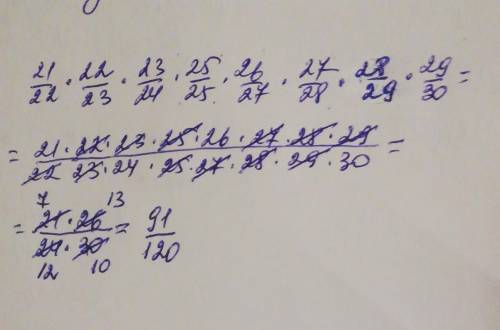 21/22 · 22/23 · 23/24 · 25/25 · 26/27 · 27/28 · 28/29 · 29/30 =
= 21·22·23·25·26·27·28·29 / 22 23·24·25·27·28·29·30 =
7 13
= 21·26 / 24·30 = 91/120
12 10